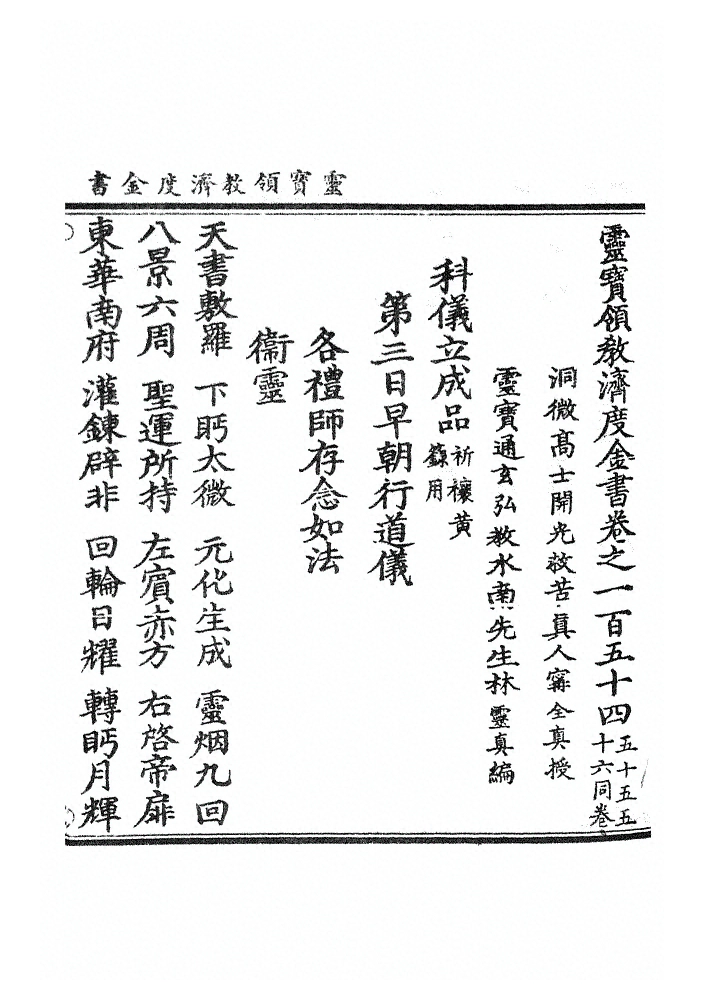 靈寶領教濟度金書
靈寶領教濟度金書卷之一百五十四五十五五十六同卷
洞微髙士開光救苦真人寗全真授
靈寶通玄弘教水南先生林靈真編
科儀立成品祈禳黄籙用
第三日早朝行道儀
各禮師存念如法
衞靈
天書敷羅 下眄太微 元化生成 靈烟九回
八景六周 聖運所持 左賔赤方 右啓帝扉
東華南府 灌鍊辟非 回輪日耀 轉眄月輝